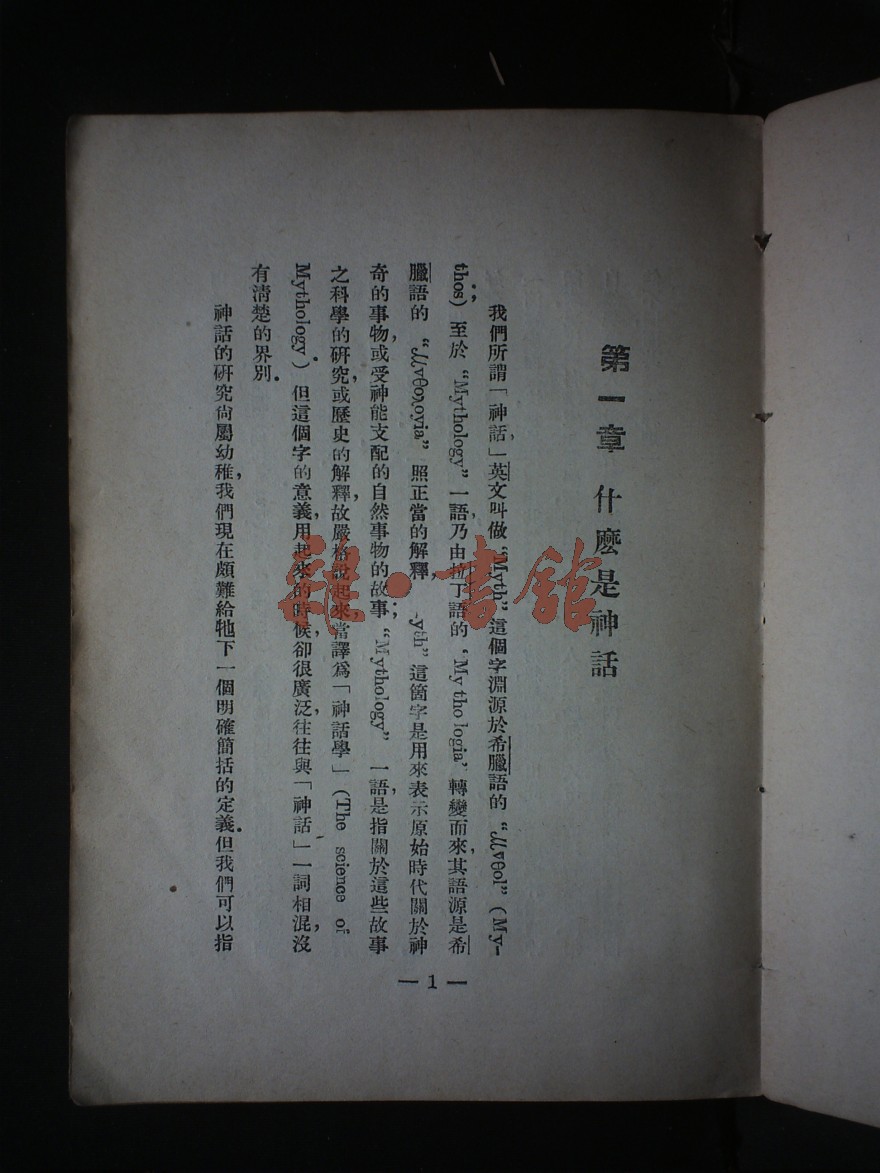 第一章 什麼是神話
我們所謂「神話」，英文叫做“Myth”這個字淵源於希臘語的“𝓜νθol”（My-
thos）；至於“Mythology”一語，乃由拉丁語的“My tho logia”轉變而來，其語源是希
臘語的“𝓜νθoλoγia”照正當的解釋，-yth”這箇字是用來表示原始時代關於神
奇的事物，或受神能支配的自然事物的故事；“Mythology”一語，是指關於這些故事
之科學的研究，或歷史的解釋，故嚴格說起來，當譯爲「神話學」（The science of
Mythology）。但這個字的意義，用起來的時候，卻很廣泛，往往與「神話」一詞相混，沒
有清楚的界別。
神話的研究尙屬幼稚，我們現在頗難給牠下一個明確簡括的定義。但我們可以指
— 1 —
雜·書館